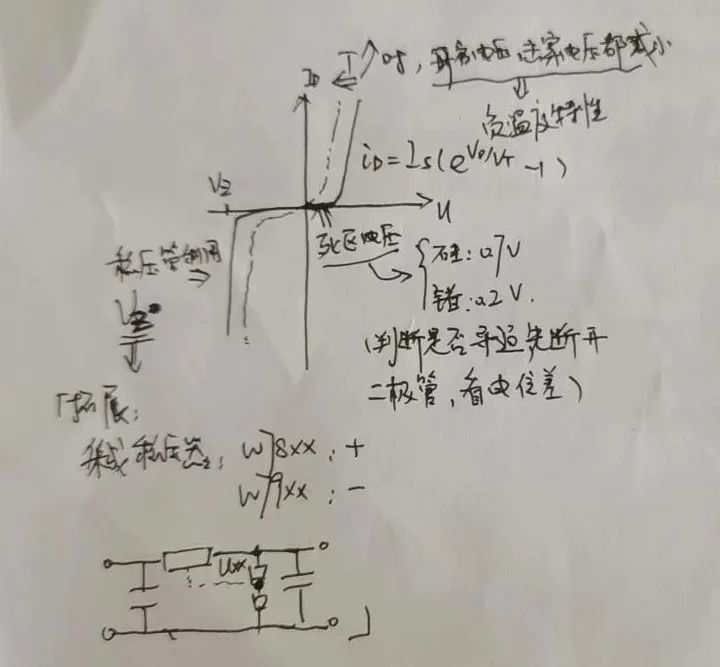 T↗时，开启电压，击穿电压都减小
负温度特性
iD
iD=Is(e^VD/VT -1)
VZ
u
死区电压
硅：0.7V
锗：0.2V.
稳压管利用
VZ
(判断是否导通先断开
二极管，看电位差)
「拓展：
集成稳压器：W78XX：+
W79XX：-
Uxx
」